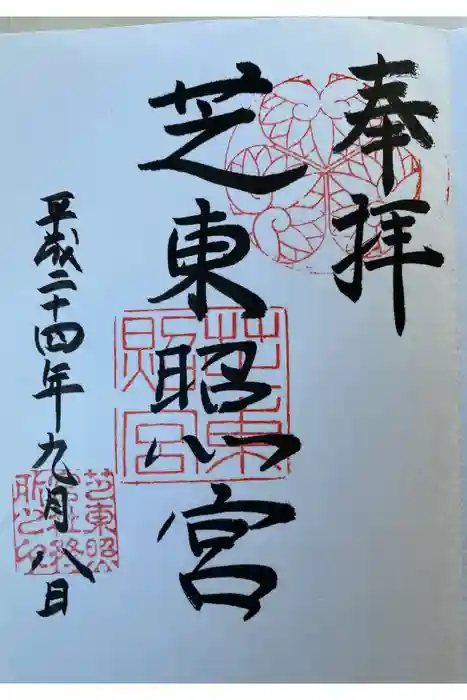 奉拝
芝東照宮
平成二十四年九月八日
芝東照宮
芝東照宮社務所之印